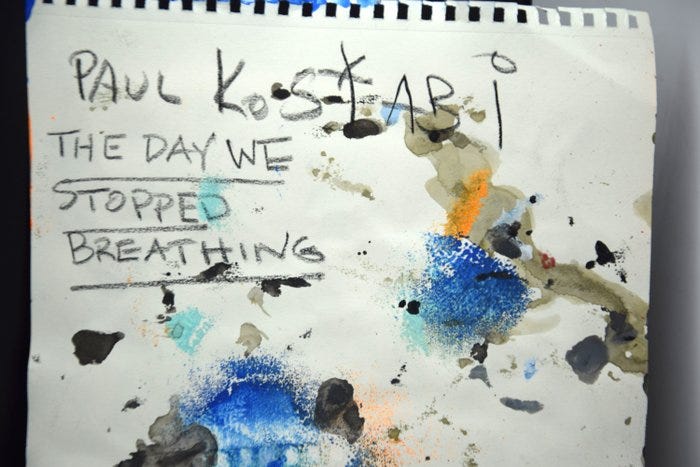 PAUL KOSTARI
THE DAY WE
STOPPED
BREATHING